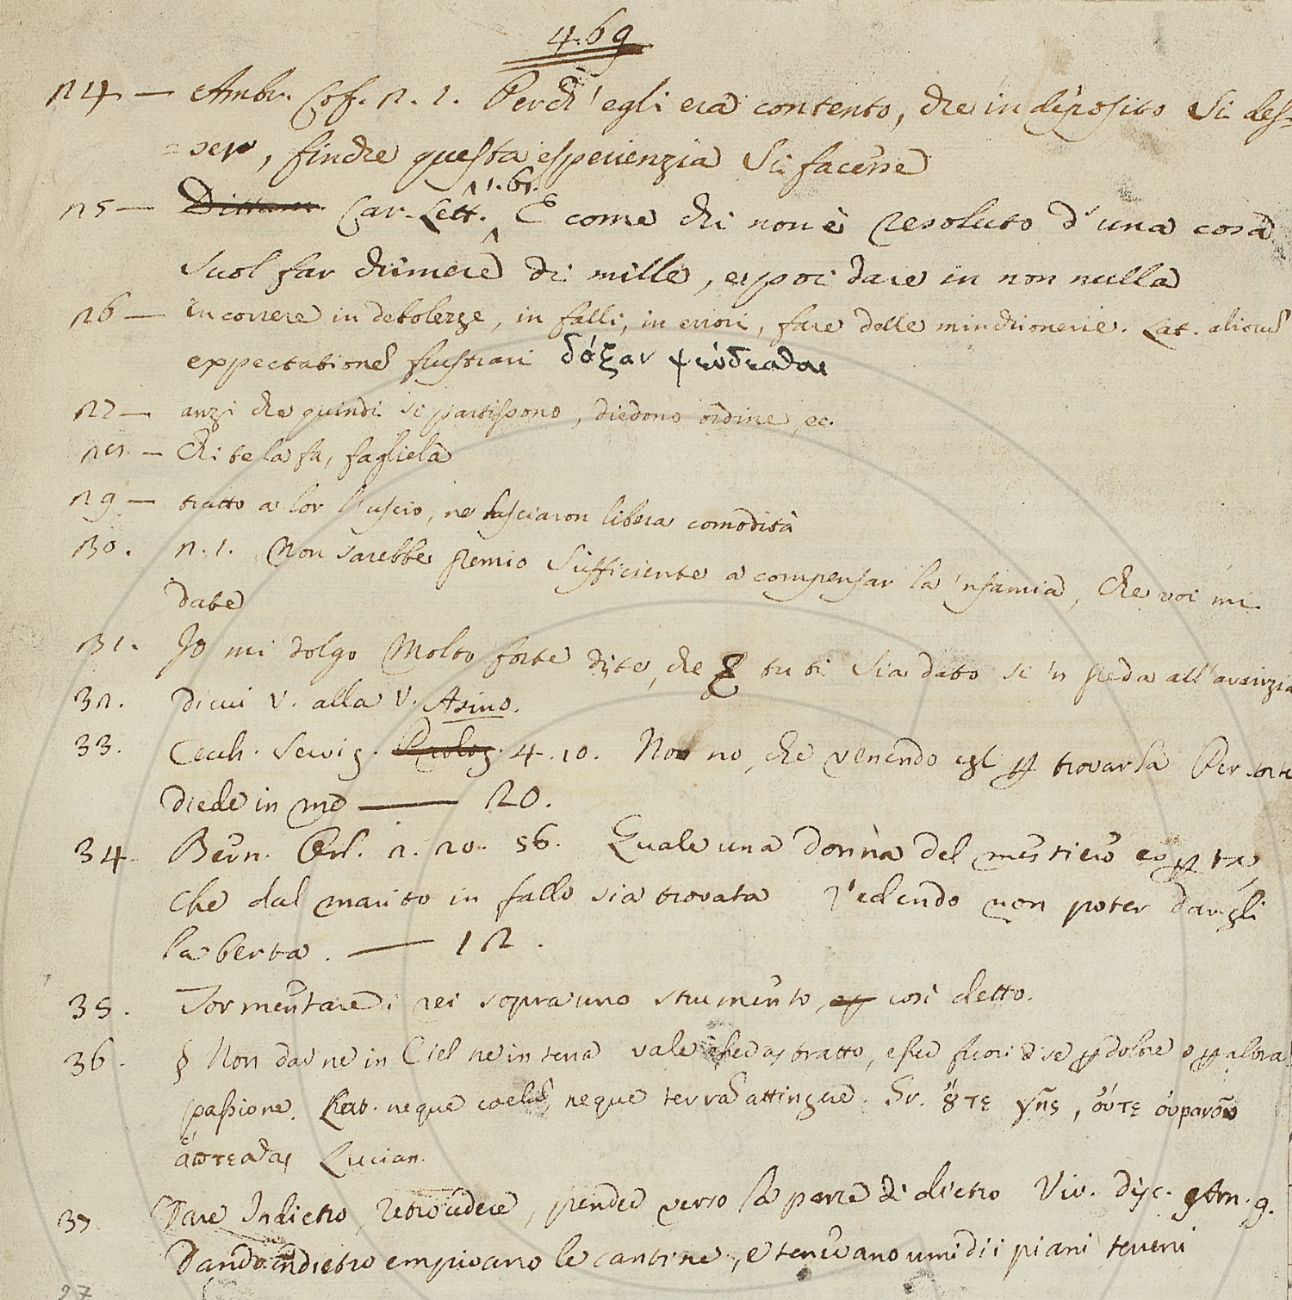 469
24 — Ambr. Cof. 2. 1. Perch' egli era contento, che in diposito si des=
=sero, finche questa esperienzia si facesse
1. 61.
25 — Car. Lett. E come chi non è resoluto d'una cosa
suol far chimere di mille, e poi dare in non nulla
26 — Incorrere in debolezze, in falli, in errori, fare delle minchionerie. Lat. alicuius
expectatione frustrari δόξαν ψεύδεσθαι
27 — anzi che quindi si partissono, diedono ordine, ec.
28. — Chi te la fa, fagliela
29 — tratto a lor l'uscio, ne lasciaron libera comodità
30. 2. 1. Non sarebbe premio sufficiente a compensar la 'nfamia, che voi mi
date
31. Io mi dolgo molto forte dite, che tu ti sia dato sì 'n preda all'avarizia
32. Dicui V. alla V. Asino.
33. Cecch. Servig. 4. 10. No no, che venendo egl p trovarla Per sorte
diede in me — 20.
34. Bern. Orl. 2. 20. 56. Quale una donna del mestiero esperta,
Che dal marito in fallo sia trovata Vedendo non poter dargli
la berta. — 12.
35. Tormentare i rei sopra uno strumento così detto.
36. § Non dar ne in Ciel ne in terra vale astratto, esser fuori di se p dolore o p altra
passione. Lat. neque coelum, neque terra attingere. Gr. ὄτε γῆς, ὄυτε ὀυρανοῦ
ἅπτεσθαι Lucian.
37. Dare Indietro, retrocedere, pender verso la parte di dietro Viv. Disc. Arn. 9.
Dando indietro empivano le cantine, e tenevano umidi i piani terreni
27